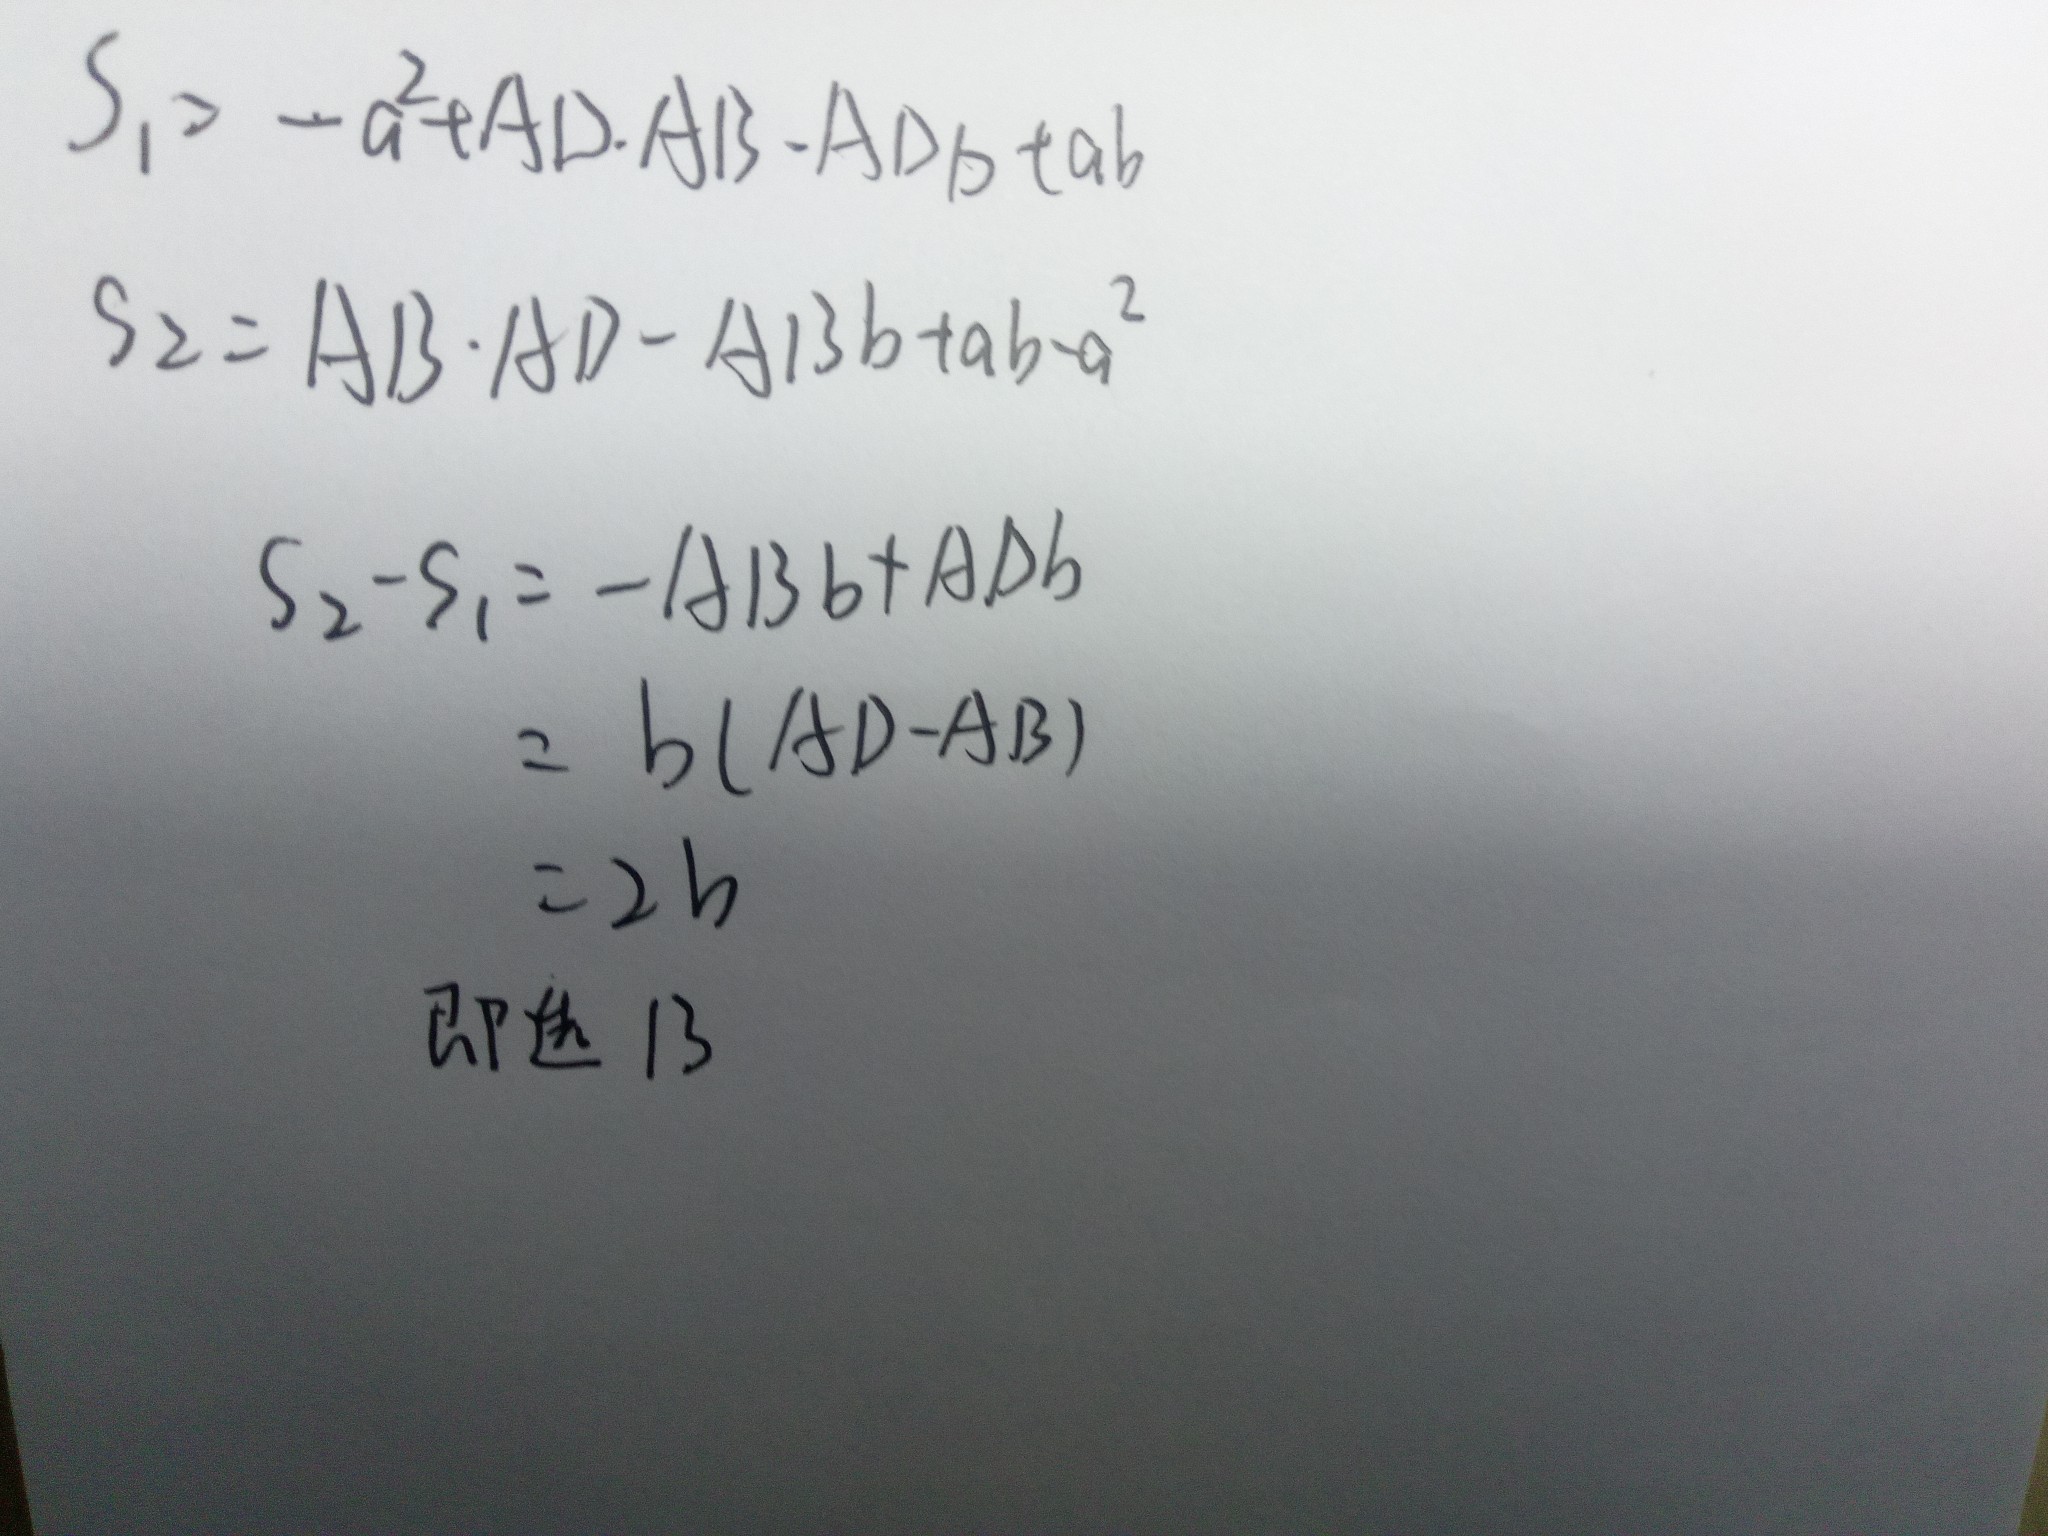 S₁= -a²+AD·AB-ADb+ab
S₂=AB·AD-ABb+ab-a²
S₂-S₁=-ABb+ADb
=b(AD-AB)
=2b
即选B